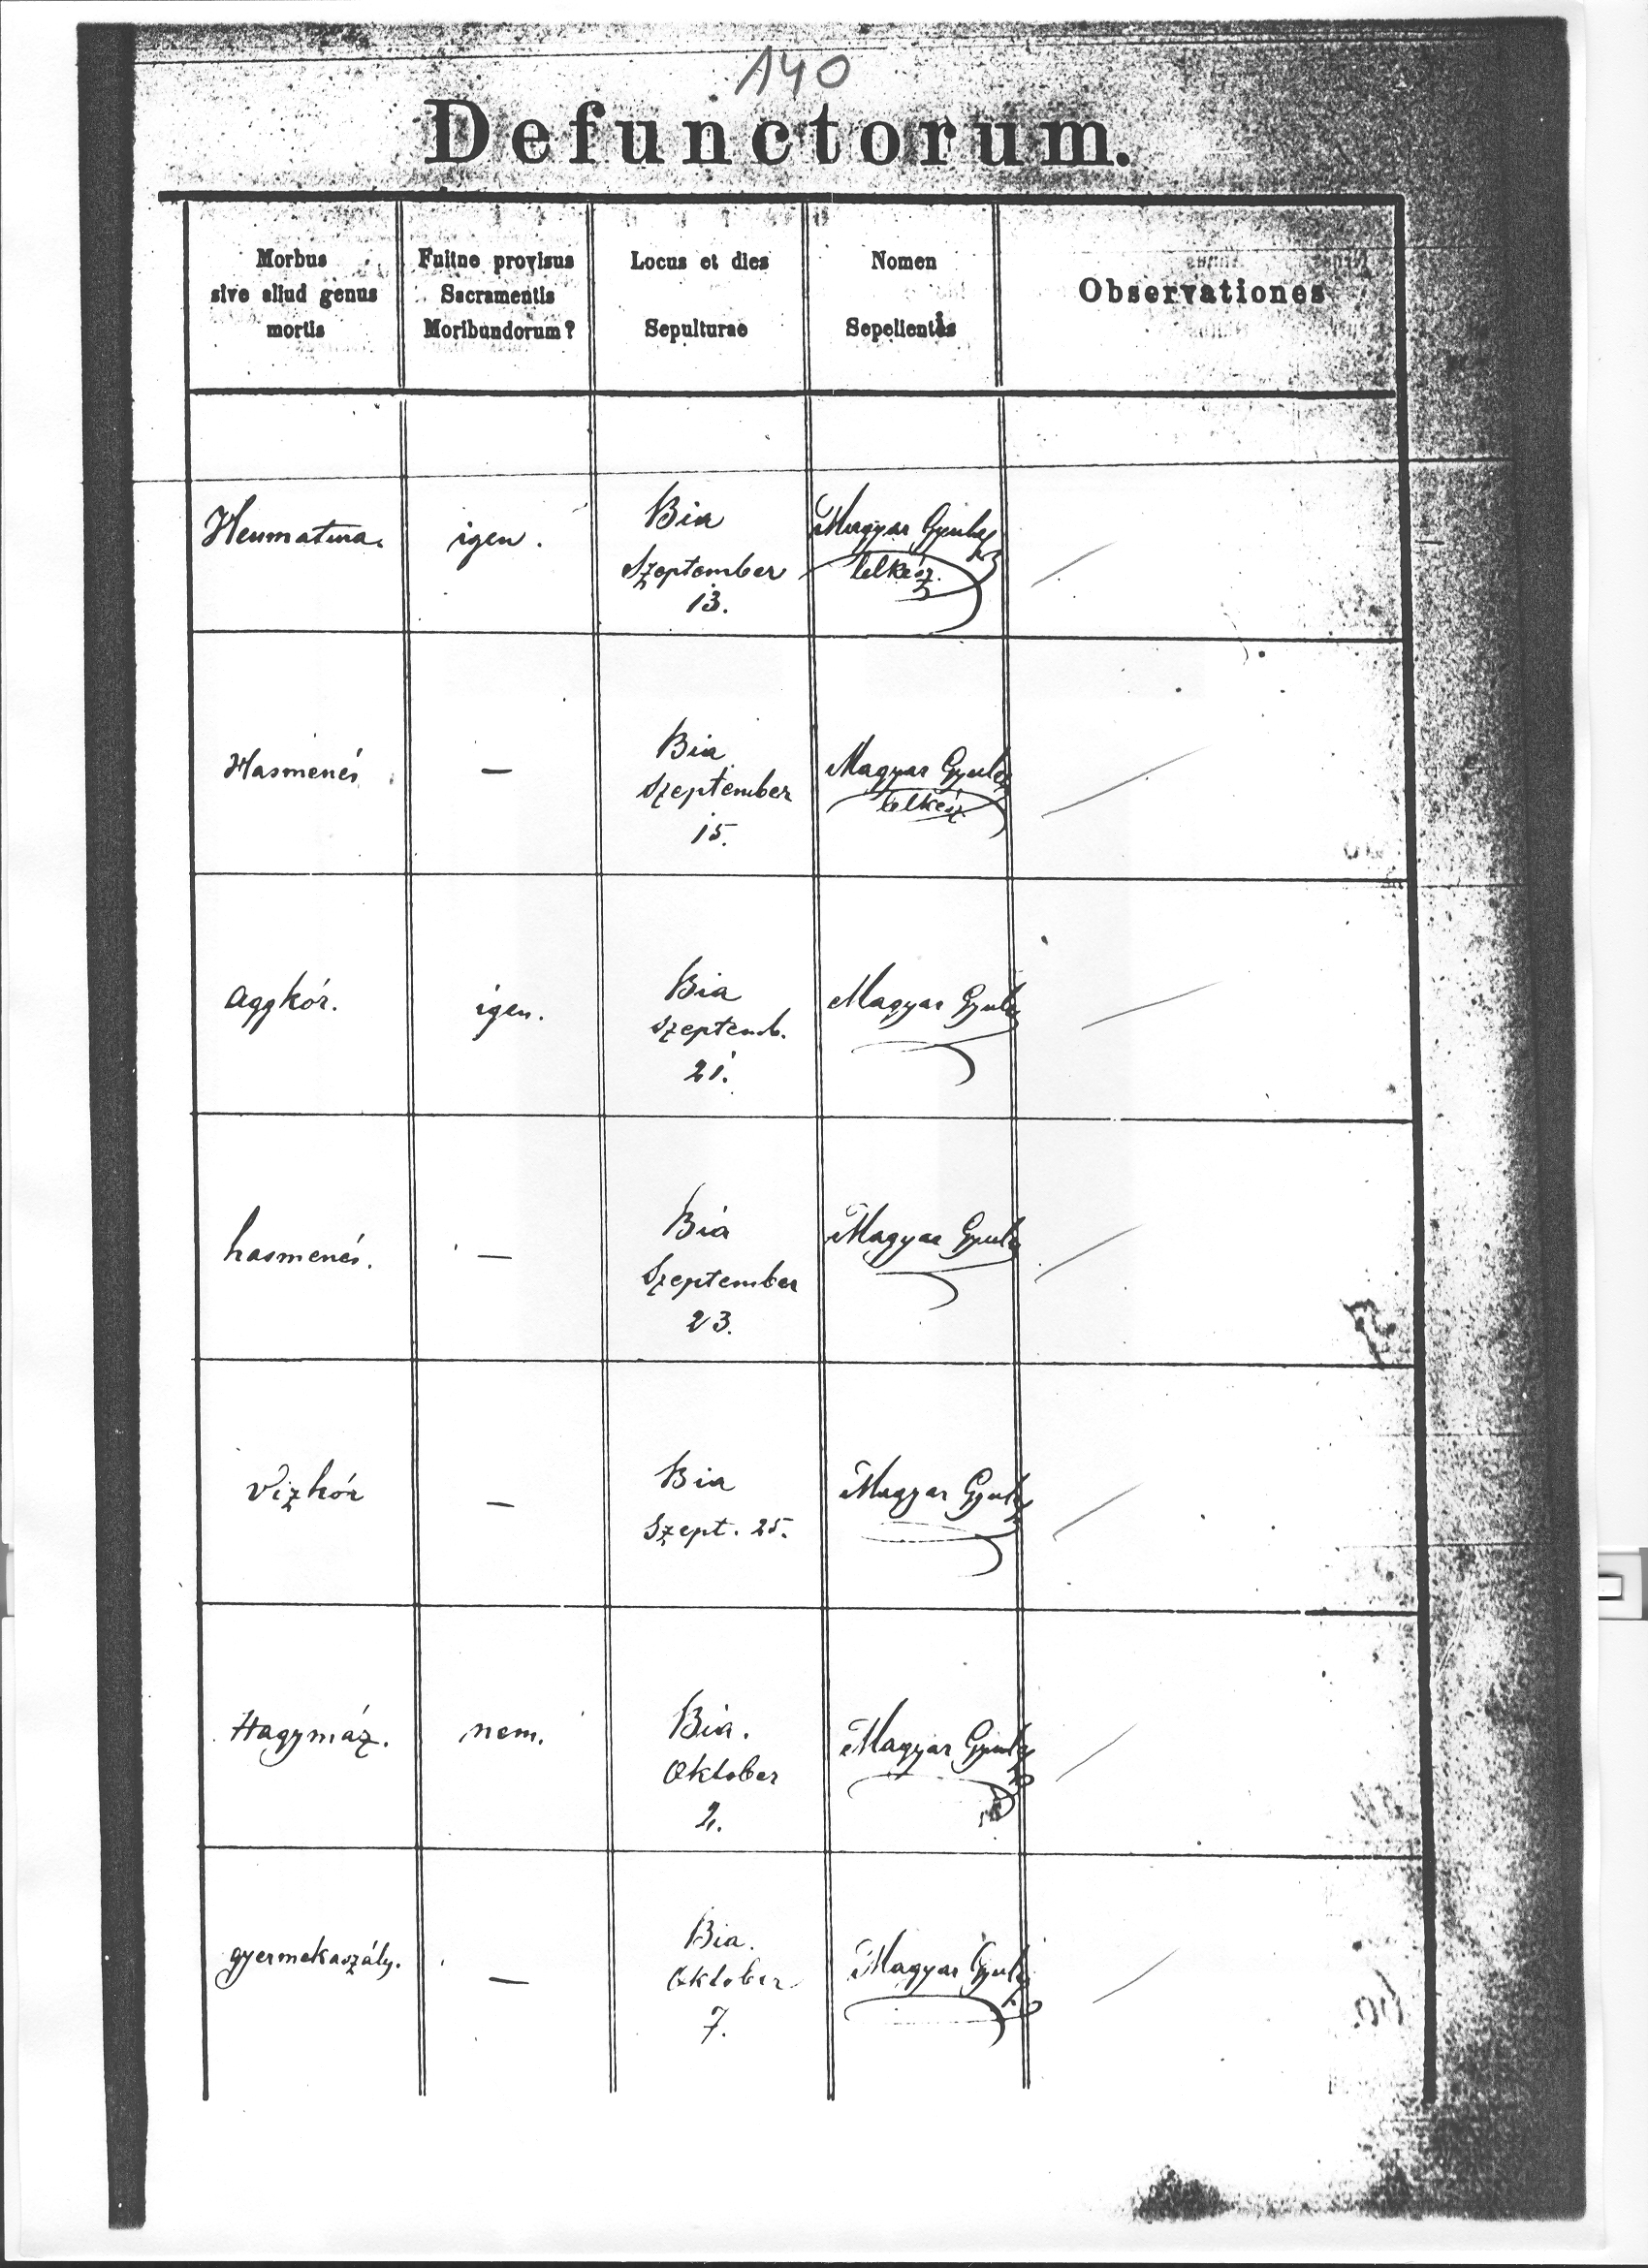 140
Defunctorum.
Morbus
sive aliud genus
mortis
Fuitne provisus
Sacramentis
Moribundorum?
Locus et dies
Sepulturae
Nomen
Sepelientis
Observationes
igen.
Bia
Szeptember
13.
Magyar Gyula
lelkész.
Hasmenés
—
Bia
Szeptember
15.
Magyar Gyula
lelkész
Aggkór.
igen.
Bia
Szeptemb.
21.
Magyar Gyula
hasmenés.
—
Bia
Szeptember
23.
Magyar Gyula
Vizkór
—
Bia
Szept. 25.
Magyar Gyula
Hagymáz.
nem.
Bia.
Oktober
2.
Magyar Gyula
gyermekaszály.
—
Bia.
Oktober
7.
Magyar Gyula